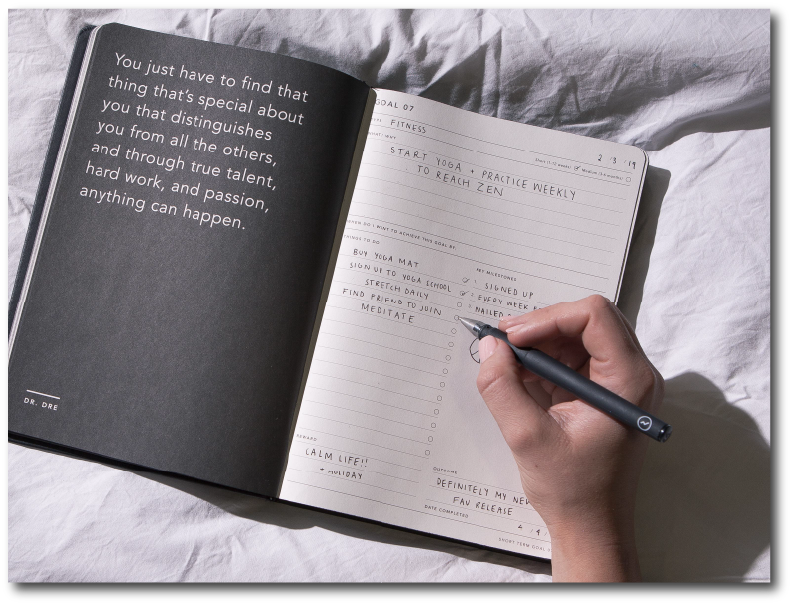 You just have to find that
thing that's special about
you that distinguishes
you from all the others,
and through true talent,
hard work, and passion,
anything can happen.
DR. DRE
GOAL 07
FITNESS
2 '3 '19
WHAT? WHY
Short (1-12 weeks) Medium (3-6 months)
START YOGA + PRACTICE WEEKLY
TO REACH ZEN
WHEN DO I WANT TO ACHIEVE THIS GOAL BY:
THINGS TO DO
BUY YOGA MAT
SIGN UP TO YOGA SCHOOL
STRETCH DAILY
FIND FRIEND TO JOIN
MEDITATE
KEY MILESTONES
1. SIGNED UP
2. EVERY WEEK
3. NAILED
REWARD
CALM LIFE!!
+ HOLIDAY
OUTCOME
DEFINITELY MY NEW
FAV RELEASE
DATE COMPLETED
4 '4
SHORT TERM GOAL